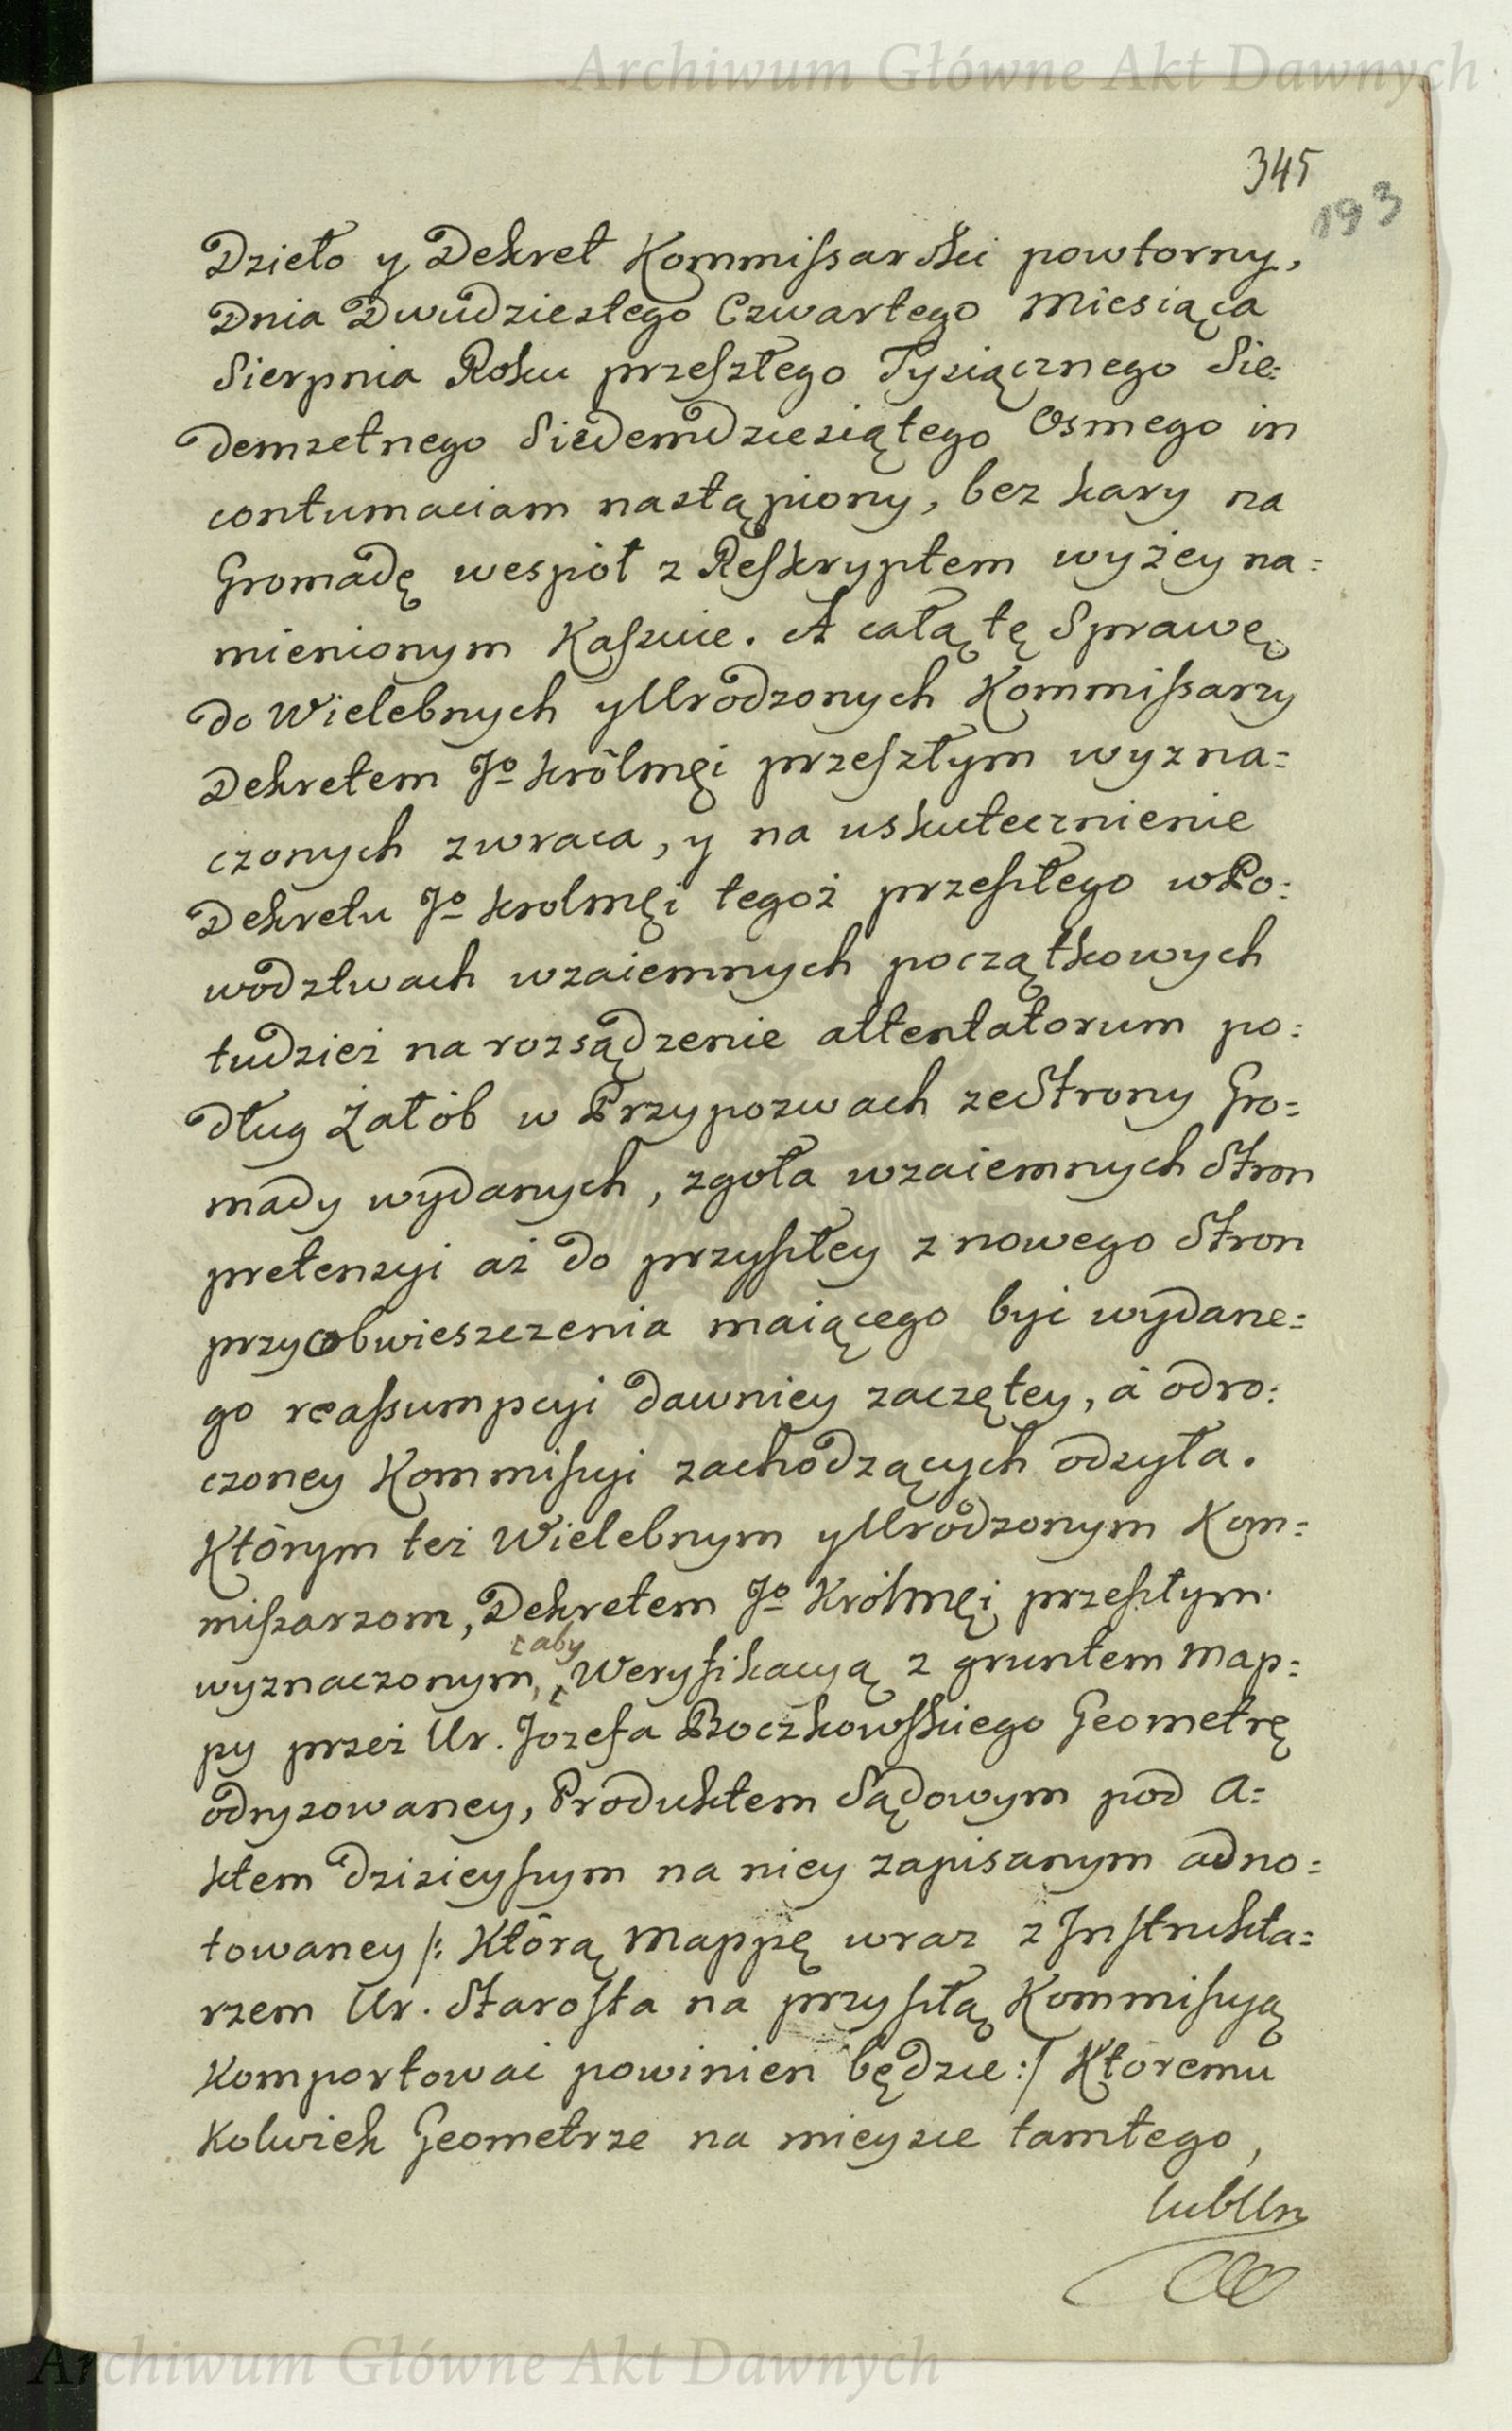 Archiwum Główne Akt Dawnych
345
193
Dzieło y Dekret Kommissarski powtorny,
Dnia Dwudziestego Czwartego Miesiąca
Sierpnia Roku przeszłego Tysiącznego Sie:
demsetnego Siedemdziesiątego Osmego in
contumaciam nastąpiony, bez kary na
Gromadę wespół z Reskryptem wyżey na:
mienionym Kassuie. A całą tę Sprawę
do Wielebnych y Urodzonych Kommissarzy
Dekretem Jo Królmęi przeszłym wyzna:
czonych zwraca, y na uskutecznienie
Dekretu Jo Krolmęi tegoż przeszłego w Po:
wodztwach wzaiemnych początkowych
tudzież na rozsądzenie attentatorum po:
dług Żałób w Przypozwach ze Strony Gro:
mady wydanych, zgoła wzaiemnych Stron
pretensyi aż do przyszłey z nowego Stron
przyobwieszczenia maiącego byc wydane:
go reassumpcyi dawniey zaczętey, a odro:
czoney Kommissyi zachodzących odsyła.
Którym też Wielebnym y Urodzonym Kom:
missarzom, Dekretem Jo Królmęi przeszłym
aby
wyznaczonym, Weryfikacyą z gruntem Map:
py przez Ur. Jozefa Boczkowskiego Geometrę
odrysowaney, Produktem Sądowym pod A:
ktem dzisieyszym na niey zapisanym adno:
towaney /: Którą Mappę wraz z Instrukta:
rzem Ur. Starosta na przyszłą Kommissyą
Komportowac powinien będzie :/ Któremu
Kolwiek Geometrze na mieysce tamtego,
lub Ur
Archiwum Główne Akt Dawnych